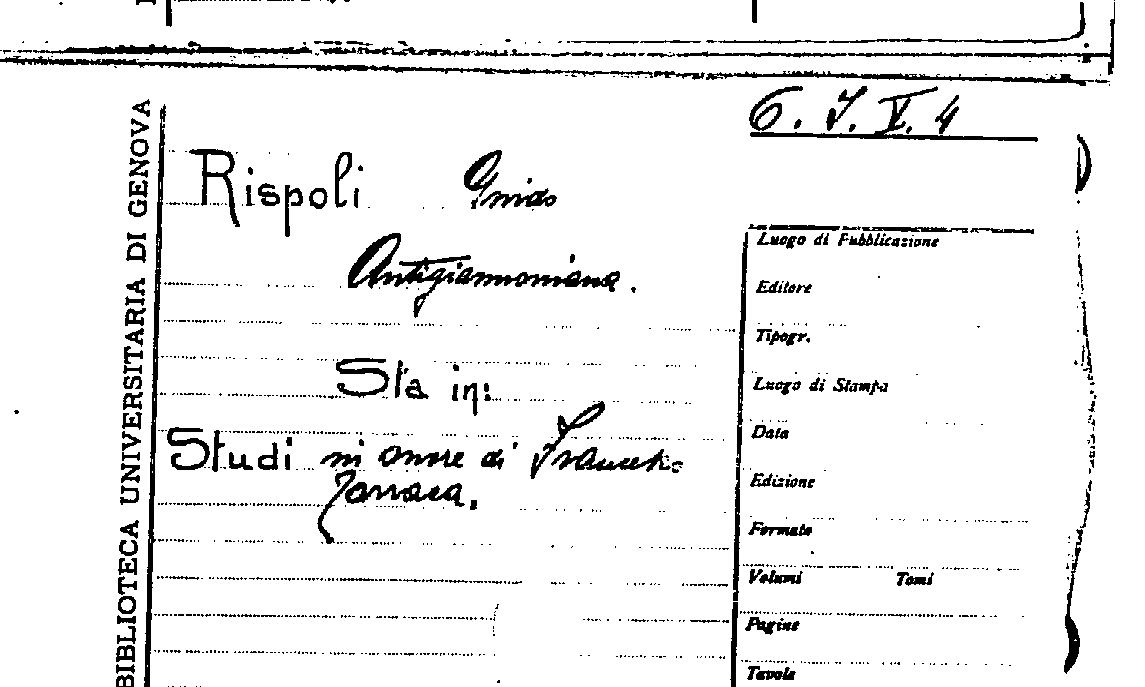 BIBLIOTECA UNIVERSITARIA DI GENOVA
6. J. V. 4
Rispoli Guido
Antigiannoniana.
Sta in:
Studi in onore di Francesco
Torraca.
Luogo di Pubblicazione
Editore
Tipogr.
Luogo di Stampa
Data
Edizione
Formato
Volumi Tomi
Pagine
Tavole